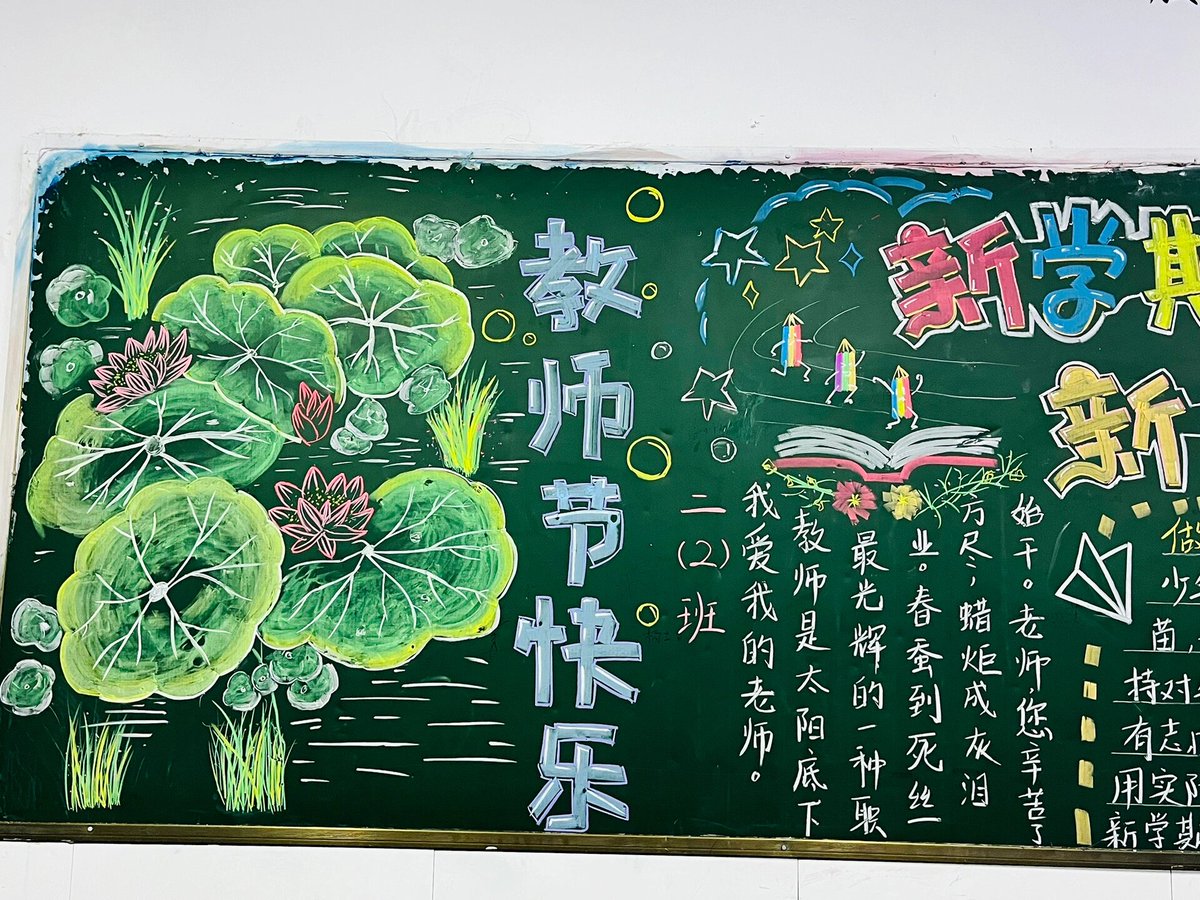 教师节快乐
二(2)班
我爱我的老师。
教师是太阳底下
最光辉的一种职
业。春蚕到死丝一
方尽，蜡炬成灰泪
始干。老师，您辛苦了
新学期
新
做
少
苗，
持对
有志
用实际
新学期